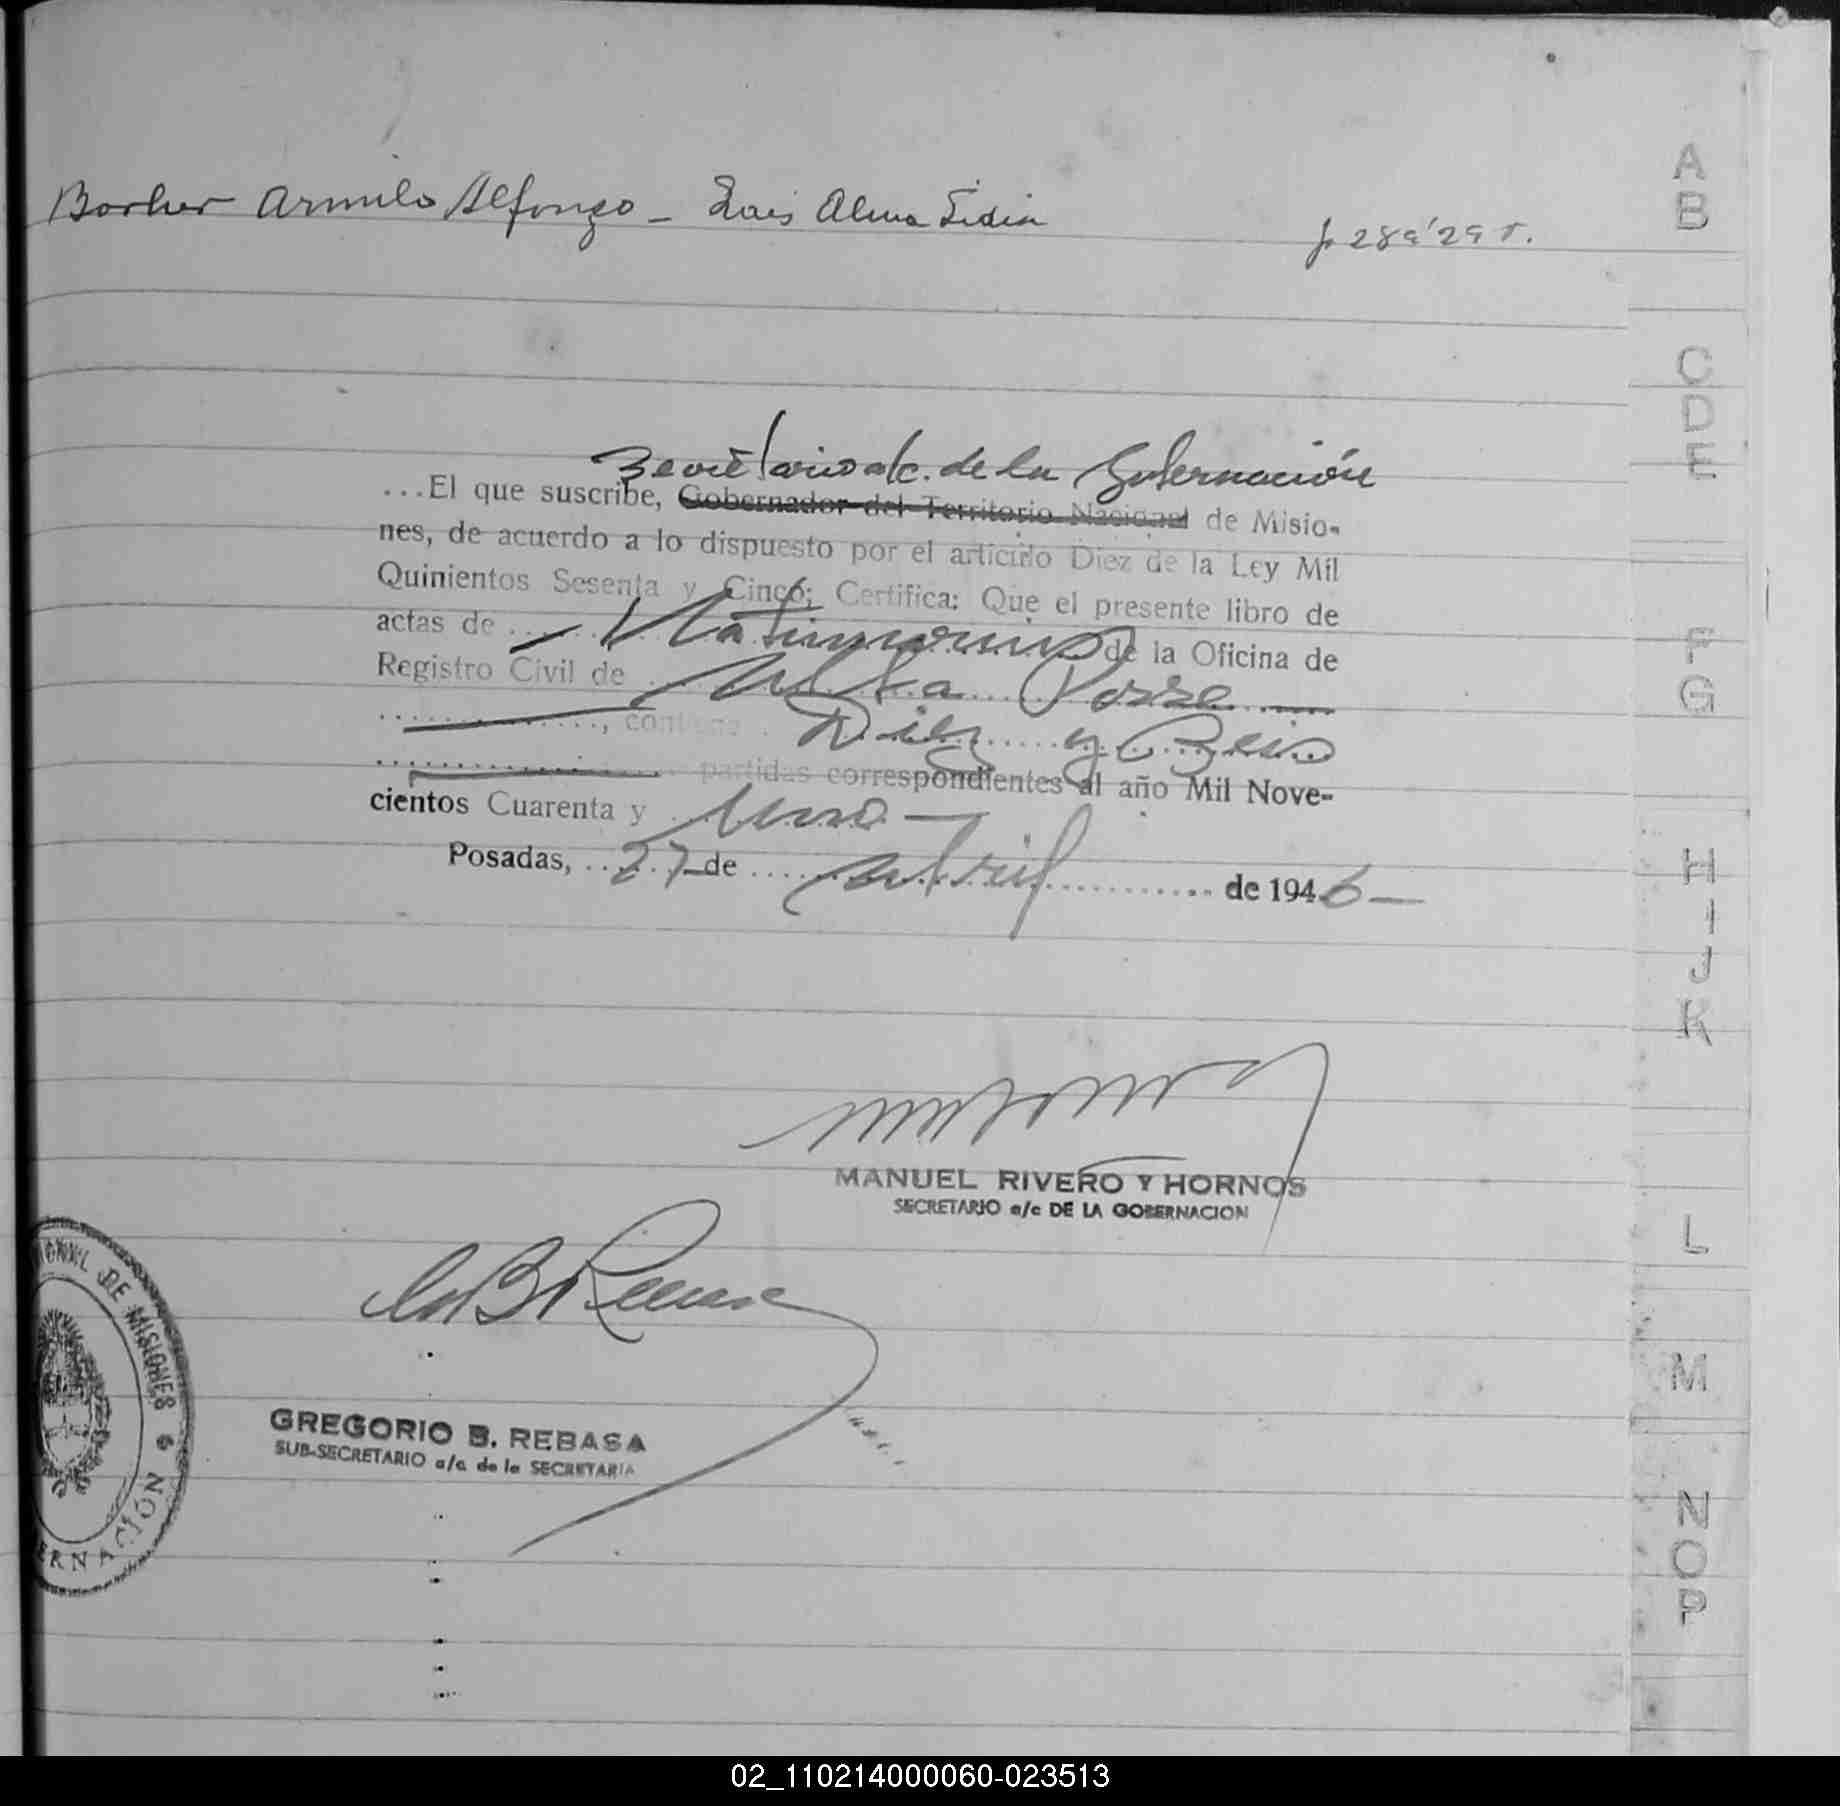 Alfonso - Alma
f 28 a 29 v.
A
B
C
D
E
F
G
H
I
J
K
L
M
N
O
P
Secretario a/c. de la Gobernación
...El que suscribe, Gobernador del Territorio Nacional de Misio-
nes, de acuerdo a lo dispuesto por el artículo Diez de la Ley Mil
Quinientos Sesenta y Cinco; Certifica: Que el presente libro de
actas de Matrimonios de la Oficina de
Registro Civil de Alba Posse
, contiene Diez y Seis
partidas correspondientes al año Mil Nove-
cientos Cuarenta y Uno
Posadas, 27 de Abril de 1946
MANUEL RIVERO Y HORNOS
SECRETARIO a/c DE LA GOBERNACION
GREGORIO B. REBASA
SUB-SECRETARIO a/c de la SECRETARIA
IONAL DE MISIONES
ERNACIÓN
02_110214000060-023513